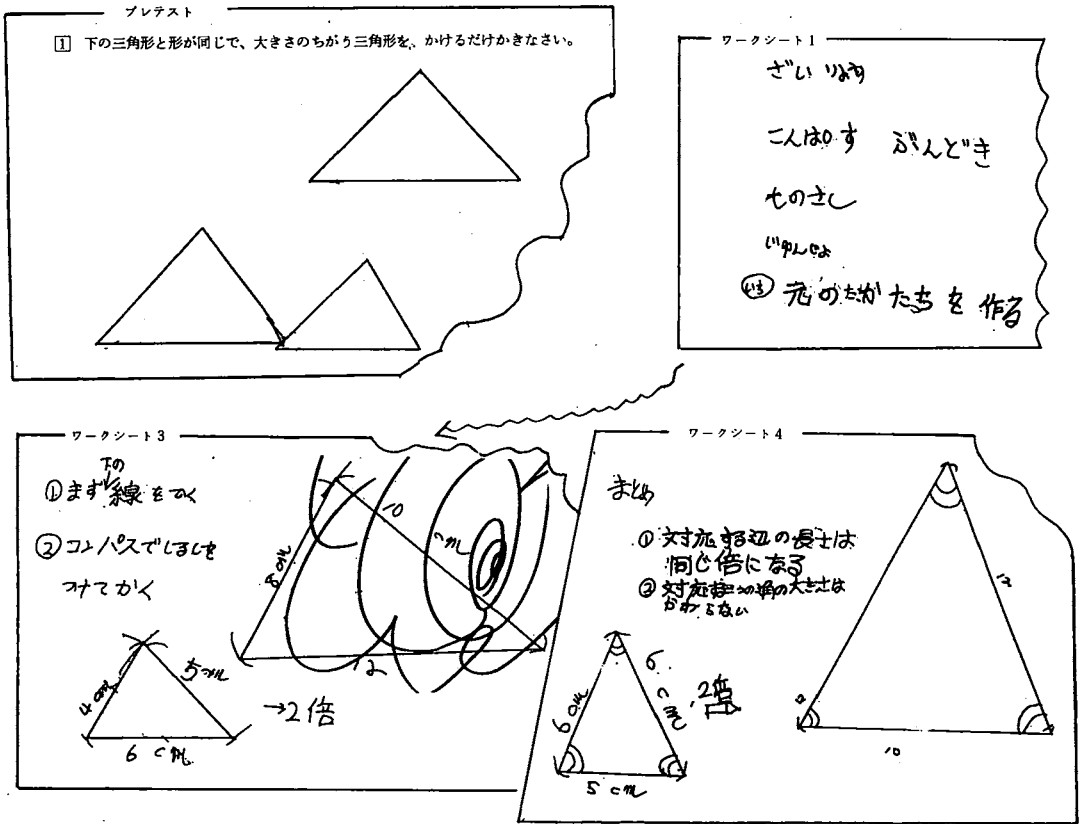 プレテスト
1 下の三角形と形が同じで、大きさのちがう三角形を、かけるだけかきなさい。
ワークシート1
ざいりょう
こんぱす ぶんどき
ものさし
じゅんじょ
元の かたちを作る
ワークシート3
下の
①まず線をひく
②コンパスでしるしを
つけてかく
4cm
5cm
6cm
→2倍
8cm
10cm
12
ワークシート4
まとめ
①対応する辺の長さは
同じ倍になる
②対応する の角の大きさは
かわらない
6cm
6cm
5cm
2倍
12
12
10